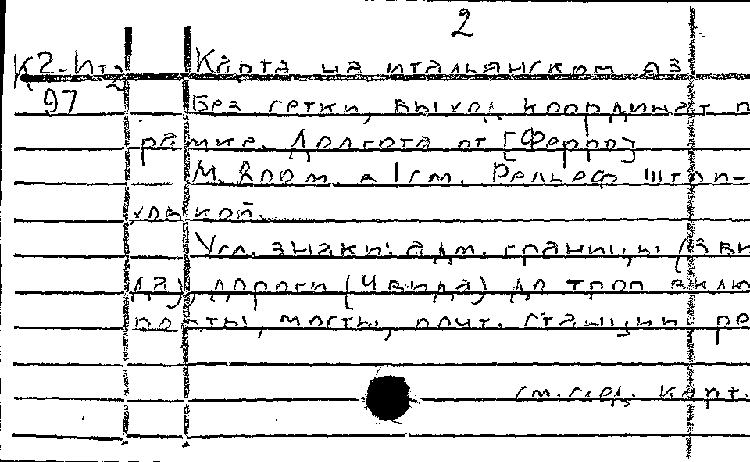 2
К2-Ит2 Карта на итальянском яз
97 Без сетки, выход координат п
рамке. Долгота от [Ферро]
М. 800 м. в 1 см. Рельеф штри-
ховкой.
Усл. знаки: адм. границы (3 ви
да), дороги (4 вида) до троп вклю
порты, мосты, почт. станции, ре
см. след. карт.